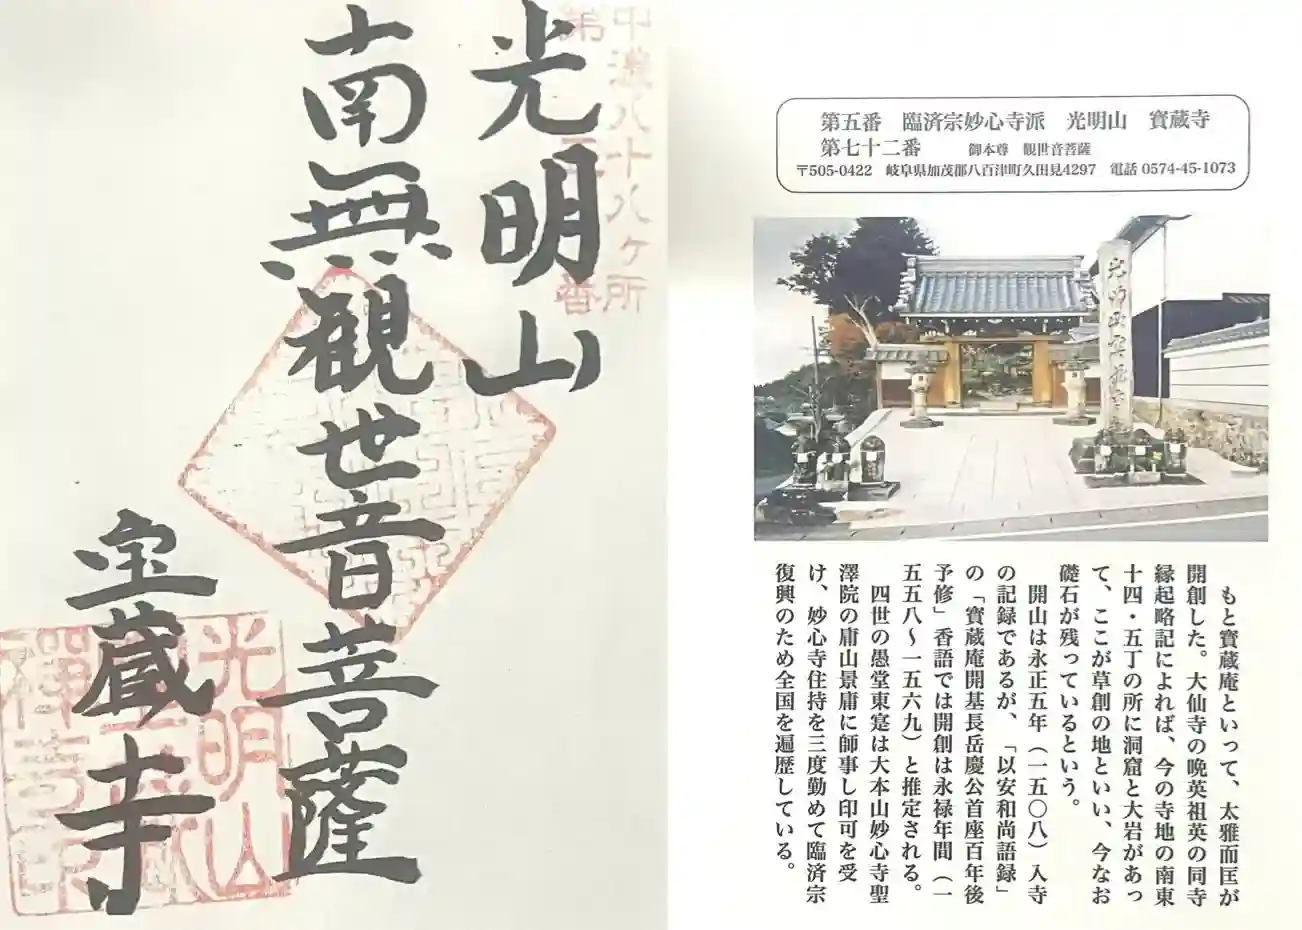 中濃八十八ヶ所
第五番
光明山
南無観世音菩薩
宝蔵寺
光明山
第五番 臨済宗妙心寺派 光明山 寳蔵寺
第七十二番 御本尊 観世音菩薩
〒505-0422 岐阜県加茂郡八百津町久田見4297 電話 0574-45-1073
光明山寳蔵寺
もと寳蔵庵といって、太雅而匡が
開創した。大仙寺の晩英祖英の同寺
縁起略記によれば、今の寺地の南東
十四・五丁の所に洞窟と大岩があっ
て、ここが草創の地といい、今なお
礎石が残っているという。
開山は永正五年（一五〇八）入寺
の記録であるが、「以安和尚語録」
の「寳蔵庵開基長岳慶公首座百年後
予修」香語では開創は永禄年間（一
五五八〜一五六九）と推定される。
四世の愚堂東寔は大本山妙心寺聖
澤院の庸山景庸に師事し印可を受
け、妙心寺住持を三度勤めて臨済宗
復興のため全国を遍歴している。